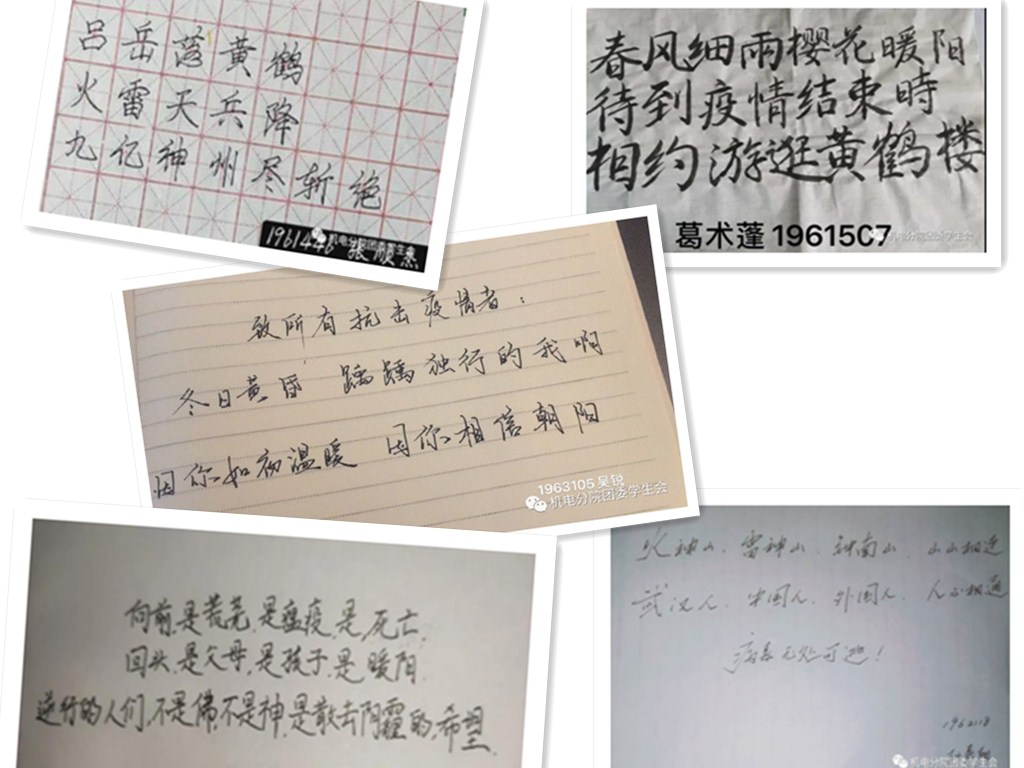 吕岳落黄鹤
火雷天兵降
九亿神州尽斩绝
1961446 张顺熹
机电分院团委学生会
春风细雨樱花暖阳
待到疫情结束時
相约游逛黄鹤楼
葛术蓬 1961507
机电分院团委学生会
致所有抗击疫情者：
冬日黄昏 踽踽独行的我啊
因你如初温暖 因你相信朝阳
1963105 吴锐
机电分院团委学生会
向前,是荒芜,是瘟疫,是死亡,
回头,是父母,是孩子,是暖阳.
逆行的人们,不是佛,不是神,是散去阴霾的,希望.
火神山、雷神山、钟南山、山山相连
武汉人、中国人、外国人、人心相通
病毒无处可逃！
1962118
机电分院团委学生会